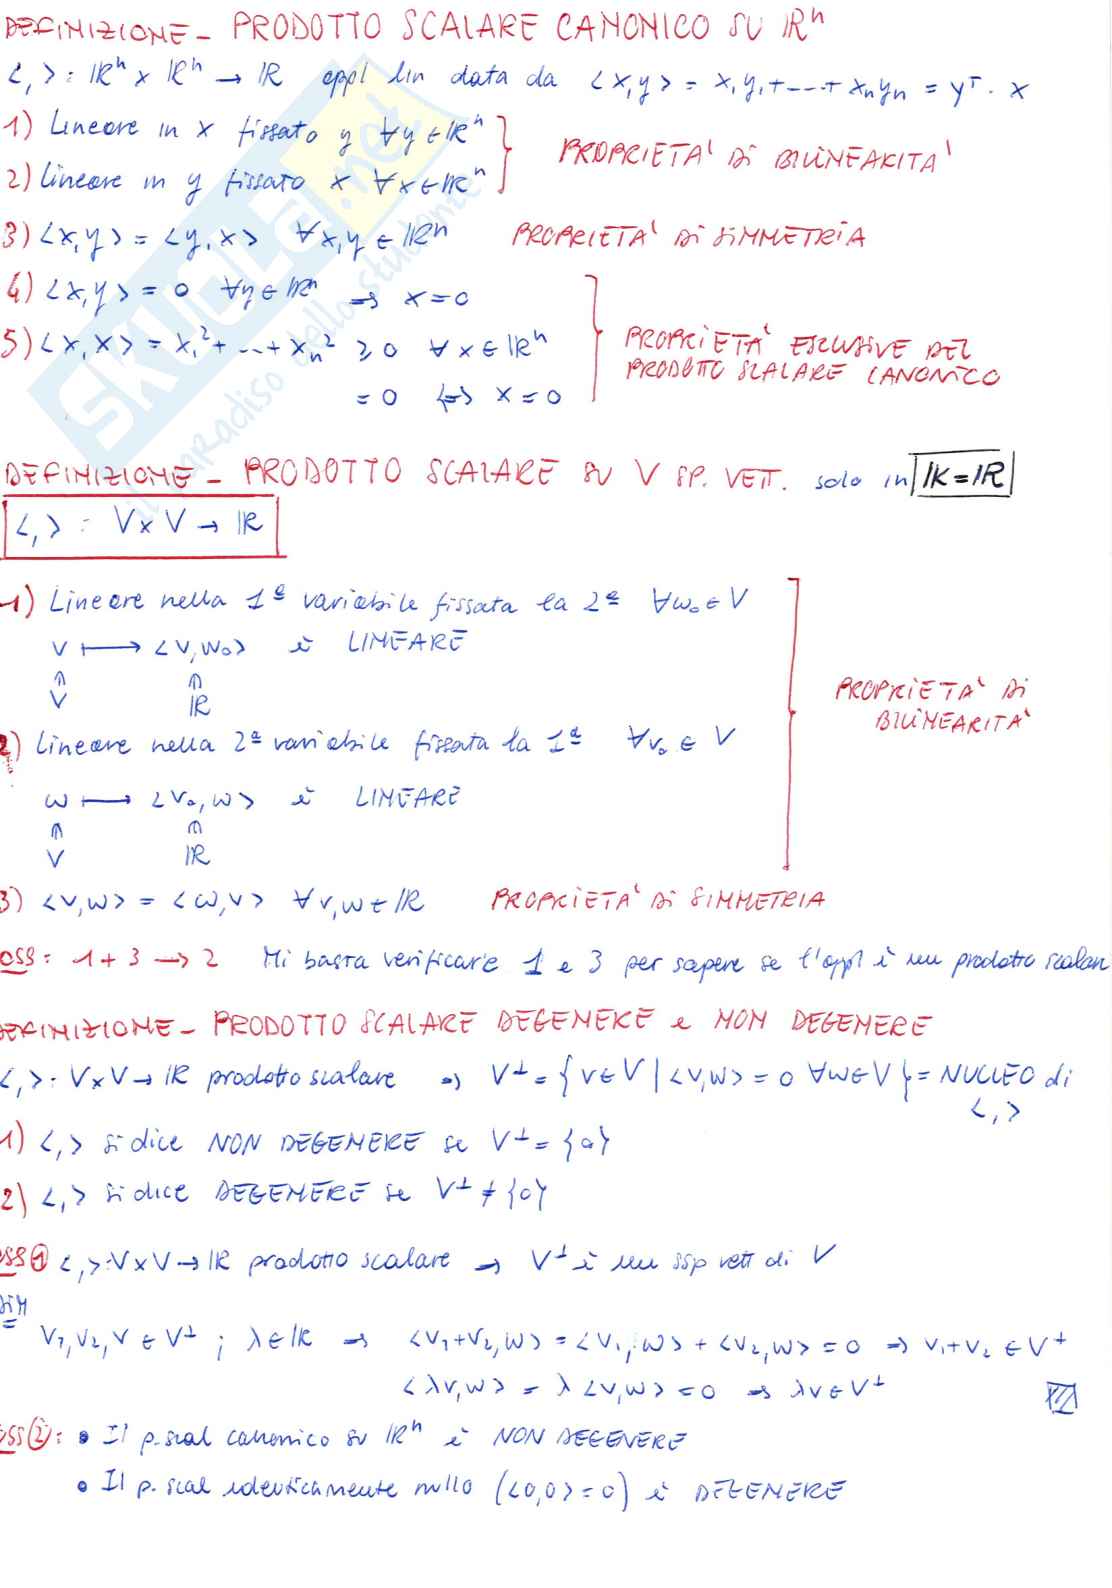 DEFINIZIONE - PRODOTTO SCALARE CANONICO SU ℝⁿ
<,> : ℝⁿ x ℝⁿ → ℝ appl lin data da <x,y> = x₁y₁+----+ xₙyₙ = yᵀ · x
1) Lineare in x fissato y ∀y∈ℝⁿ
2) Lineare in y fissato x ∀x∈ℝⁿ
PROPRIETA' DI BILINEARITA'
3) <x,y> = <y,x> ∀x,y ∈ ℝⁿ PROPRIETA' DI SIMMETRIA
4) <x,y> = 0 ∀y∈ℝⁿ ⇒ x=0
5) <x,x> = x₁²+ ...+ xₙ² ≥ 0 ∀x∈ℝⁿ
= 0 ⇔ x=0
PROPRIETA' ESCLUSIVE DEL
PRODOTTO SCALARE CANONICO
SKUOLA.net
il paradiso dello studente
DEFINIZIONE - PRODOTTO SCALARE SU V SP. VETT. solo in 𝕂=ℝ
<,> : V x V → ℝ
1) Lineare nella 1ª variabile fissata la 2ª ∀w₀∈V
v ⟼ <v,w₀> è LINEARE
⋒ ⋒
V ℝ
2) Lineare nella 2ª variabile fissata la 1ª ∀v₀ ∈ V
w ⟼ <v₀,w> è LINEARE
⋒ ⋒
V ℝ
PROPRIETA' DI
BILINEARITA'
3) <v,w> = <w,v> ∀v,w∈ℝ PROPRIETA' DI SIMMETRIA
OSS: 1+3 → 2 Mi basta verificare 1 e 3 per sapere se l'appl è un prodotto scalare
DEFINIZIONE - PRODOTTO SCALARE DEGENERE e NON DEGENERE
<,> : V x V → ℝ prodotto scalare ⇒ V⊥ = {v∈V | <v,w> = 0 ∀w∈V} = NUCLEO di
<,>
1) <,> si dice NON DEGENERE se V⊥ = {0}
2) <,> si dice DEGENERE se V⊥ ≠ {0}
OSS① <,>:V x V → ℝ prodotto scalare ⇒ V⊥ è un ssp vett di V
DIM
v₁,v₂,v ∈ V⊥ ; λ∈ℝ ⇒ <v₁+v₂,w> = <v₁,w> + <v₂,w> = 0 ⇒ v₁+v₂ ∈ V⊥
<λv,w> = λ <v,w> = 0 ⇒ λv∈V⊥
OSS②: • Il p.scal canonico su ℝⁿ è NON DEGENERE
• Il p. scal identicamente nullo (<0,0>=0) è DEGENERE